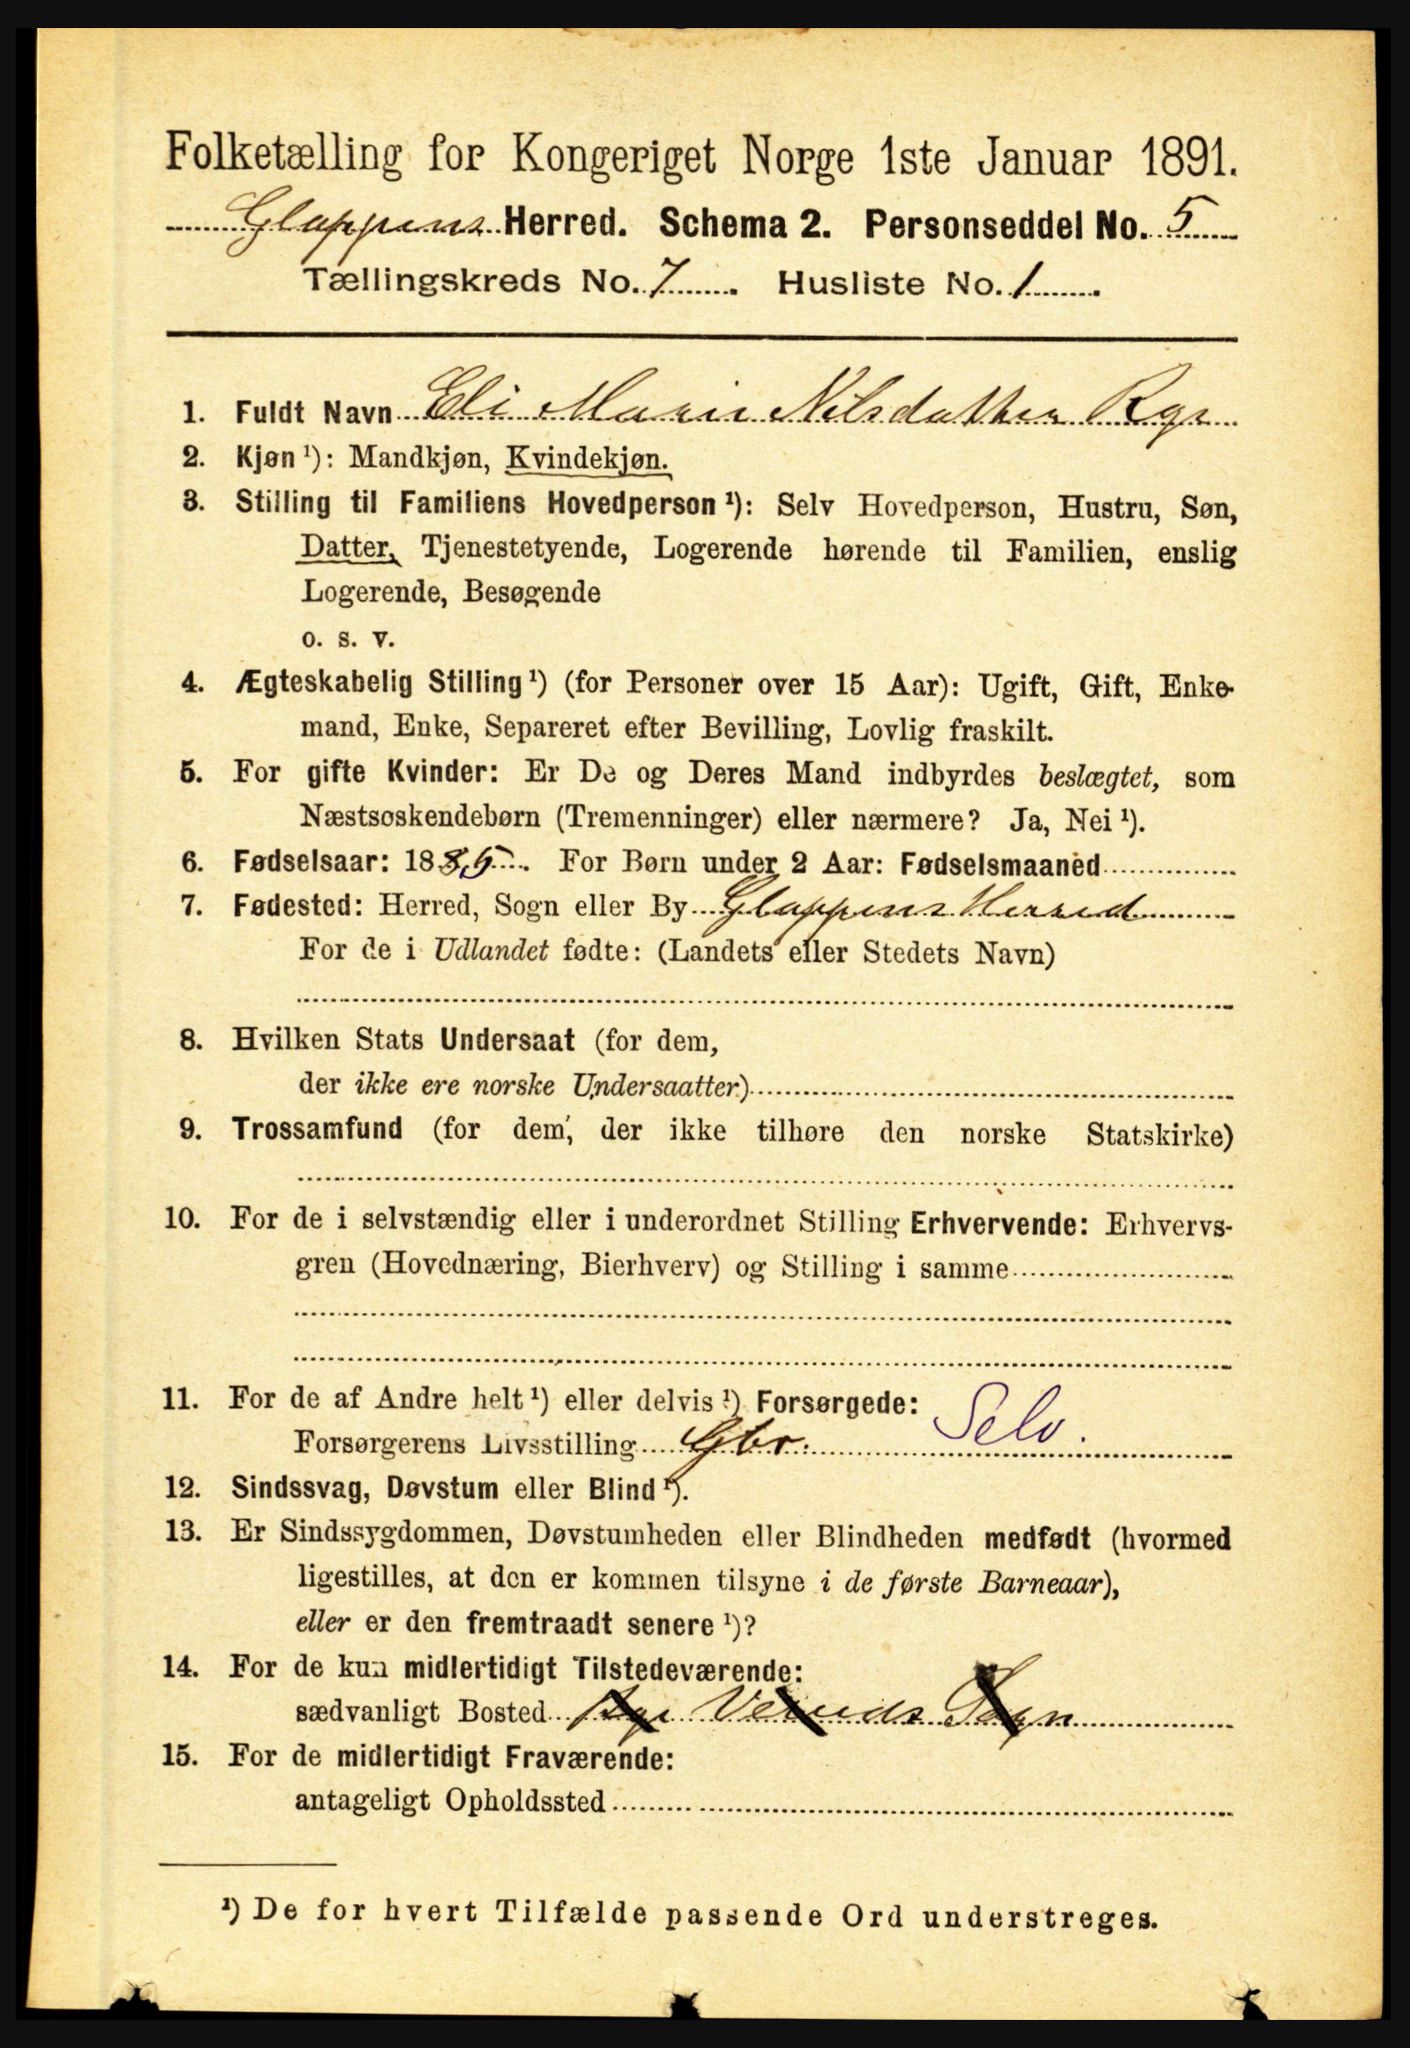 Folketælling for Kongeriget Norge 1ste Januar 1891.
Gloppens Herred. Schema 2. Personseddel No. 5
Tællingskreds No. 7. Husliste No. 1.
1. Fuldt Navn Eli Marie Nilsdatter Ryg
2. Kjøn ¹): Mandkjøn, Kvindekjøn.
3. Stilling til Familiens Hovedperson ¹): Selv Hovedperson, Hustru, Søn,
Datter, Tjenestetyende, Logerende hørende til Familien, enslig
Logerende, Besøgende
o. s. v.
4. Ægteskabelig Stilling ¹) (for Personer over 15 Aar): Ugift, Gift, Enke-
mand, Enke, Separeret efter Bevilling, Lovlig fraskilt.
5. For gifte Kvinder: Er De og Deres Mand indbyrdes beslægtet, som
Næstsøskendebørn (Tremenninger) eller nærmere? Ja, Nei ¹).
6. Fødselsaar: 1885. For Børn under 2 Aar: Fødselsmaaned
7. Fødested: Herred, Sogn eller By Gloppens Herred
For de i Udlandet fødte: (Landets eller Stedets Navn)
8. Hvilken Stats Undersaat (for dem,
der ikke ere norske Undersaatter)
9. Trossamfund (for dem, der ikke tilhøre den norske Statskirke)
10. For de i selvstændig eller i underordnet Stilling Erhvervende: Erhvervs-
gren (Hovednæring, Bierhverv) og Stilling i samme
11. For de af Andre helt ¹) eller delvis ¹) Forsørgede:
Forsørgerens Livsstilling Gbr. Selv.
12. Sindssvag, Døvstum eller Blind ¹).
13. Er Sindssygdommen, Døvstumheden eller Blindheden medfødt (hvormed
ligestilles, at den er kommen tilsyne i de første Barneaar),
eller er den fremtraadt senere ¹)?
14. For de kun midlertidigt Tilstedeværende:
sædvanligt Bosted Sogn
15. For de midlertidigt Fraværende:
antageligt Opholdssted
¹) De for hvert Tilfælde passende Ord understreges.